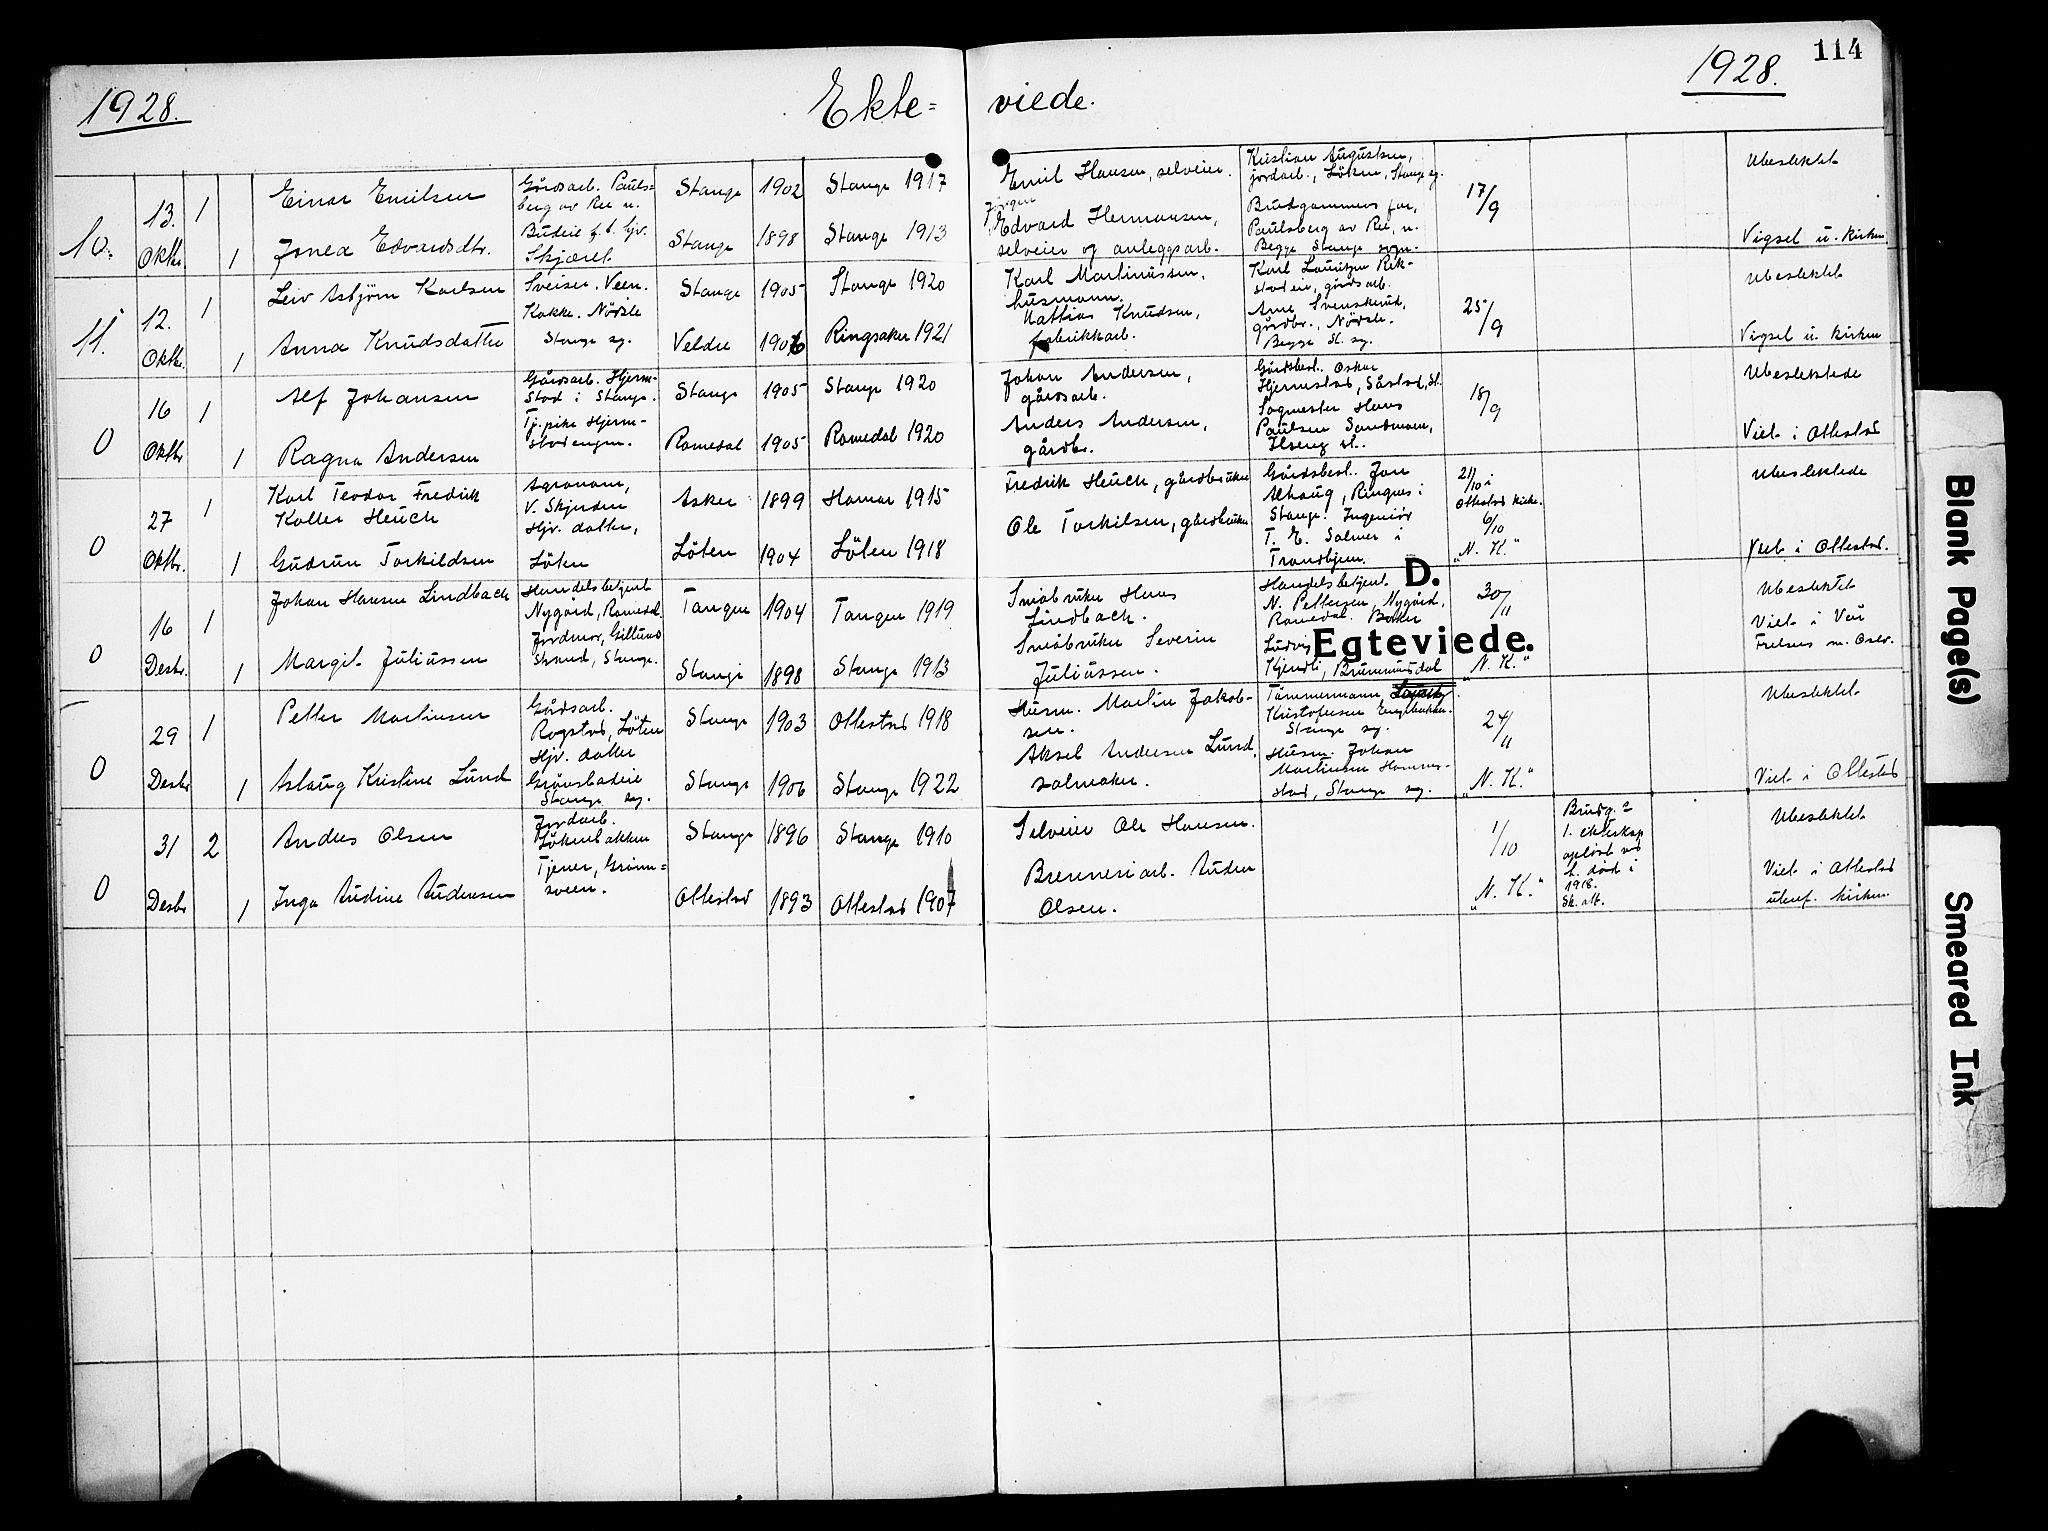 1928.
Ekte=
viede.
1928.
114
10.
13.
Oktbr.
1
1
Einar Emilsen
Gårdsarb. Pauls=
berg av Ree u.
Stange
1902
Stange 1917
Emil Hansen, selveier.
Kristian Augustsen,
jordarb., Löken, Stange sg.
17/9
Ubeslektet
Budeie f. t. hjv.
Skjæret
Stange
1898
Stange 1913
Edvard Hermansen,
selveier og anleggsarb.
Brudgommens far,
Paulsberg av Ree, u.
Begge Stange sogn.
Vigsel u. kirken
11.
12.
Oktbr.
1
1
Leiv Asbjörn Karlsen
Sveiser. Veen.
Stange
1905
Stange 1920
Karl Martinussen,
husmann.
Karl Lauritzen Rik-
stad eie, gårdsarb.
25/9
Ubeslektet
Anna Knudsdatter
Kokke. Nördle
Stange sg.
Veldre
1906
Ringsaker 1921
Mathias Knudsen,
fabrikkarb.
Arne Svenskerud,
gårdbr., Nördle.
Begge St. sg.
Vigsel u. kirken
0
16
Oktbr
1
1
Alf Johansen
Gårdsarb. Hjerm-
stad i Stange.
Stange
1905
Stange 1920
Johan Andersen,
gårdsarb.
Gårdsbest. Oskar
Hjermstad, Såstad, St.
18/9
Ubeslektede
Ragna Andersen
Tj. pike Hjerm-
stadengen.
Romedal
1905
Romedal 1920
Anders Andersen,
gårdbr.
Sagmester Hans
Paulsen Sandmoen,
Ilseng st.
Viet i Ottestad
0
27
Oktbr.
1
1
Karl Teodor Fredrik
Koller Heuch
Agronom,
V. Skjerden
Asker
1899
Hamar 1915
Fredrik Heuch, gårdbruker
Gårdsbest. Jon
Alhaug, Ringnes i
Stange. Ingeniör
21/10 i
Ottestad kirke.
6/10
Ubeslektede
Gudrun Torkildsen
Hjv. datter,
Löten
Löten
1904
Löten 1918
Ole Torkilsen, gårdbruker
T. E. Salmer i
Trondhjem.
"N. K."
Viet i Ottestad.
0
16
Desbr.
1
1
Johan Hansen Lindbach
Handelsbetjent
Nygård, Romedal
Tangen
1904
Tangen 1919
Småbruker Hans
Lindbach.
Handelsbetjent
N. Pettersen, Nygård,
Romedal.
30/11
Ubeslektet
Viet i Den
Frelsers m. Oslo.
Margit Juliussen
Jordmor, Gillund
Strand, Stange.
Stange
1898
Stange 1913
Småbruker Severin
Juliussen.
Ludvig
Kjendli, Brummunddal
"N. K."
D.
Egteviede.
0
29
Desbr
1
1
Petter Martinsen
Gårdsarb.
Rogstad, Löten
Stange
1903
Ottestad 1918
Husm. Martin Jakob-
sen.
Tömmermann
Kristofersen Engebakken.
Stange sg.
24/11
Ubeslektet
Aslaug Kristine Lund
Hjv. datter
Grönsladeie
Stange sg.
Stange
1906
Stange 1922
Aksel Andersen Lund,
salmaker.
Husm. Johan
Martinsen Hammer-
stad, Stange sg.
"N. K."
Viet i Ottestad
0
31
Desbr
2
1
Anders Olsen
Jordarb.
Lökenbakken
Stange
1896
Stange 1910
Selveier Ole Hansen.
1/10
Brudg.s
1. ekteskap
oplöst ved
h. död i
1918.
Sk. att.
Ubeslektet
Inga Audine Audensen
Tjener, Grönn=
sveen.
Ottestad
1893
Ottestad 1907
Brenneriarb. Auden
Olsen.
"N. K."
Viet i Ottestad
utenf. kirken
Blank Page(s)
Smeared Ink